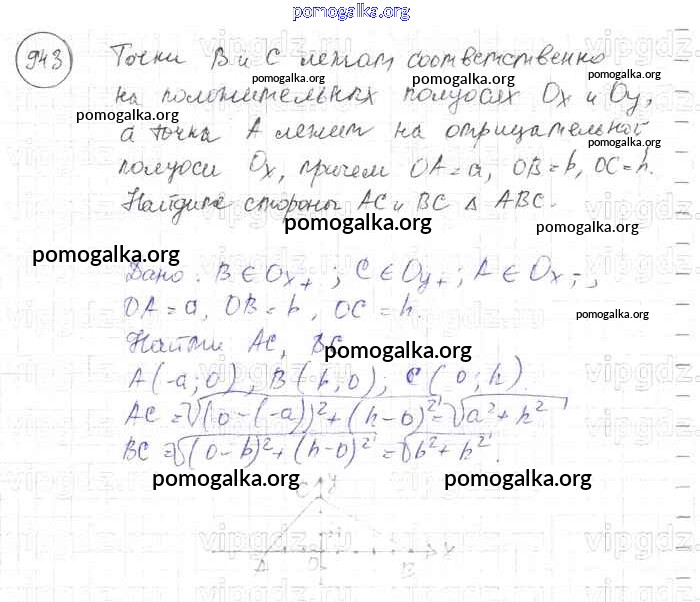 pomogalka.org
943 Точки В и С лежат соответственно
на положительных полуосях Ox и Oy,
а точка А лежит на отрицательной
полуоси Ox, причем OA=a, OB=b, OC=h.
Найдите стороны AC и BC Δ ABC.
Дано: B∈Ox+; C∈Oy+; A∈Ox-;
OA=a, OB=b, OC=h.
Найти AC, BC
A(-a;0), B(b;0); C(0;h)
AC=√(0-(-a))²+(h-0)²=√a²+h²
BC=√(0-b)²+(h-0)²=√b²+h².
C y
A O B x
pomogalka.org
pomogalka.org
pomogalka.org
pomogalka.org
pomogalka.org
pomogalka.org
pomogalka.org
pomogalka.org
pomogalka.org
pomogalka.org
pomogalka.org
pomogalka.org
vipgdz